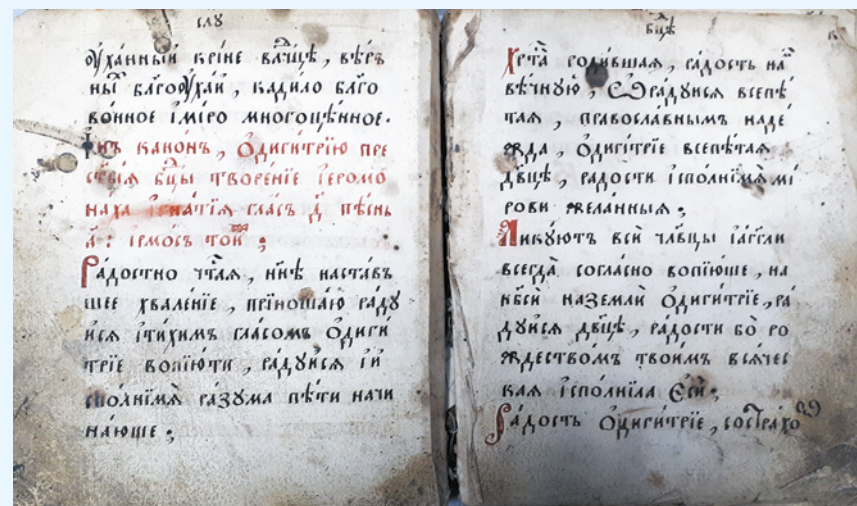 слꙋ
ѹ҆ха́нный крі́не влⷣчце, вѣ́р
ныⷨ благоѹ҆ха́й, кади́ло благо
во́нное і҆ мѵ́ро многоцѣ́нное.
И҆нъ кано́нъ, Ѻ҆диги́трїю пре
ст҃ы́ѧ бцⷣы творе́нїе і҆еромо
на́ха і҆гна́тїѧ гла́съ д҃ пѣ́снь
а҃: і҆рмо́съ то́й ;
Ра́достно чтⷭаѧ, нн҃ѣ наста́въ
шее хвале́нїе, прїношⷶаю ра́дꙋ
йсѧ і҆ ти́химъ гла́сомъ Ѻ҆диги́
трїе вопїю́ти, ра́дꙋйсѧ і҆ и҆
спо́лнімѧ ра́зꙋма пѣ́ти начи
на́юше ;
бцⷣе
Хрⷭта̀ роди́вшаѧ, ра́дость наⷨ
вѣ́чнꙋю, Ѽра́дꙋйсѧ всепѣ́
таѧ, правосла́внымъ наде́
жда, Ѻ҆диги́трїе всепѣ́таѧ
дв҃це, ра́дости і҆спо́лнімѧ мі́
рови жела́нныѧ ;
Ликꙋ́ютъ всѝ чл҃вцы і҆а҆́гг҃ли
всегда̀, согла́сно вопїю́ше, на
нб҃сѝ наземлѝ Ѻ҆диги́трїе, ра́
дꙋйсѧ дв҃це, ра́дости бо̀ ро
ждество́мъ твои́мъ всѧ́чес
каѧ і҆спо́лніла є҆сѝ ;
Ра́дость Ѻ҆диги́трїе, состра́хо